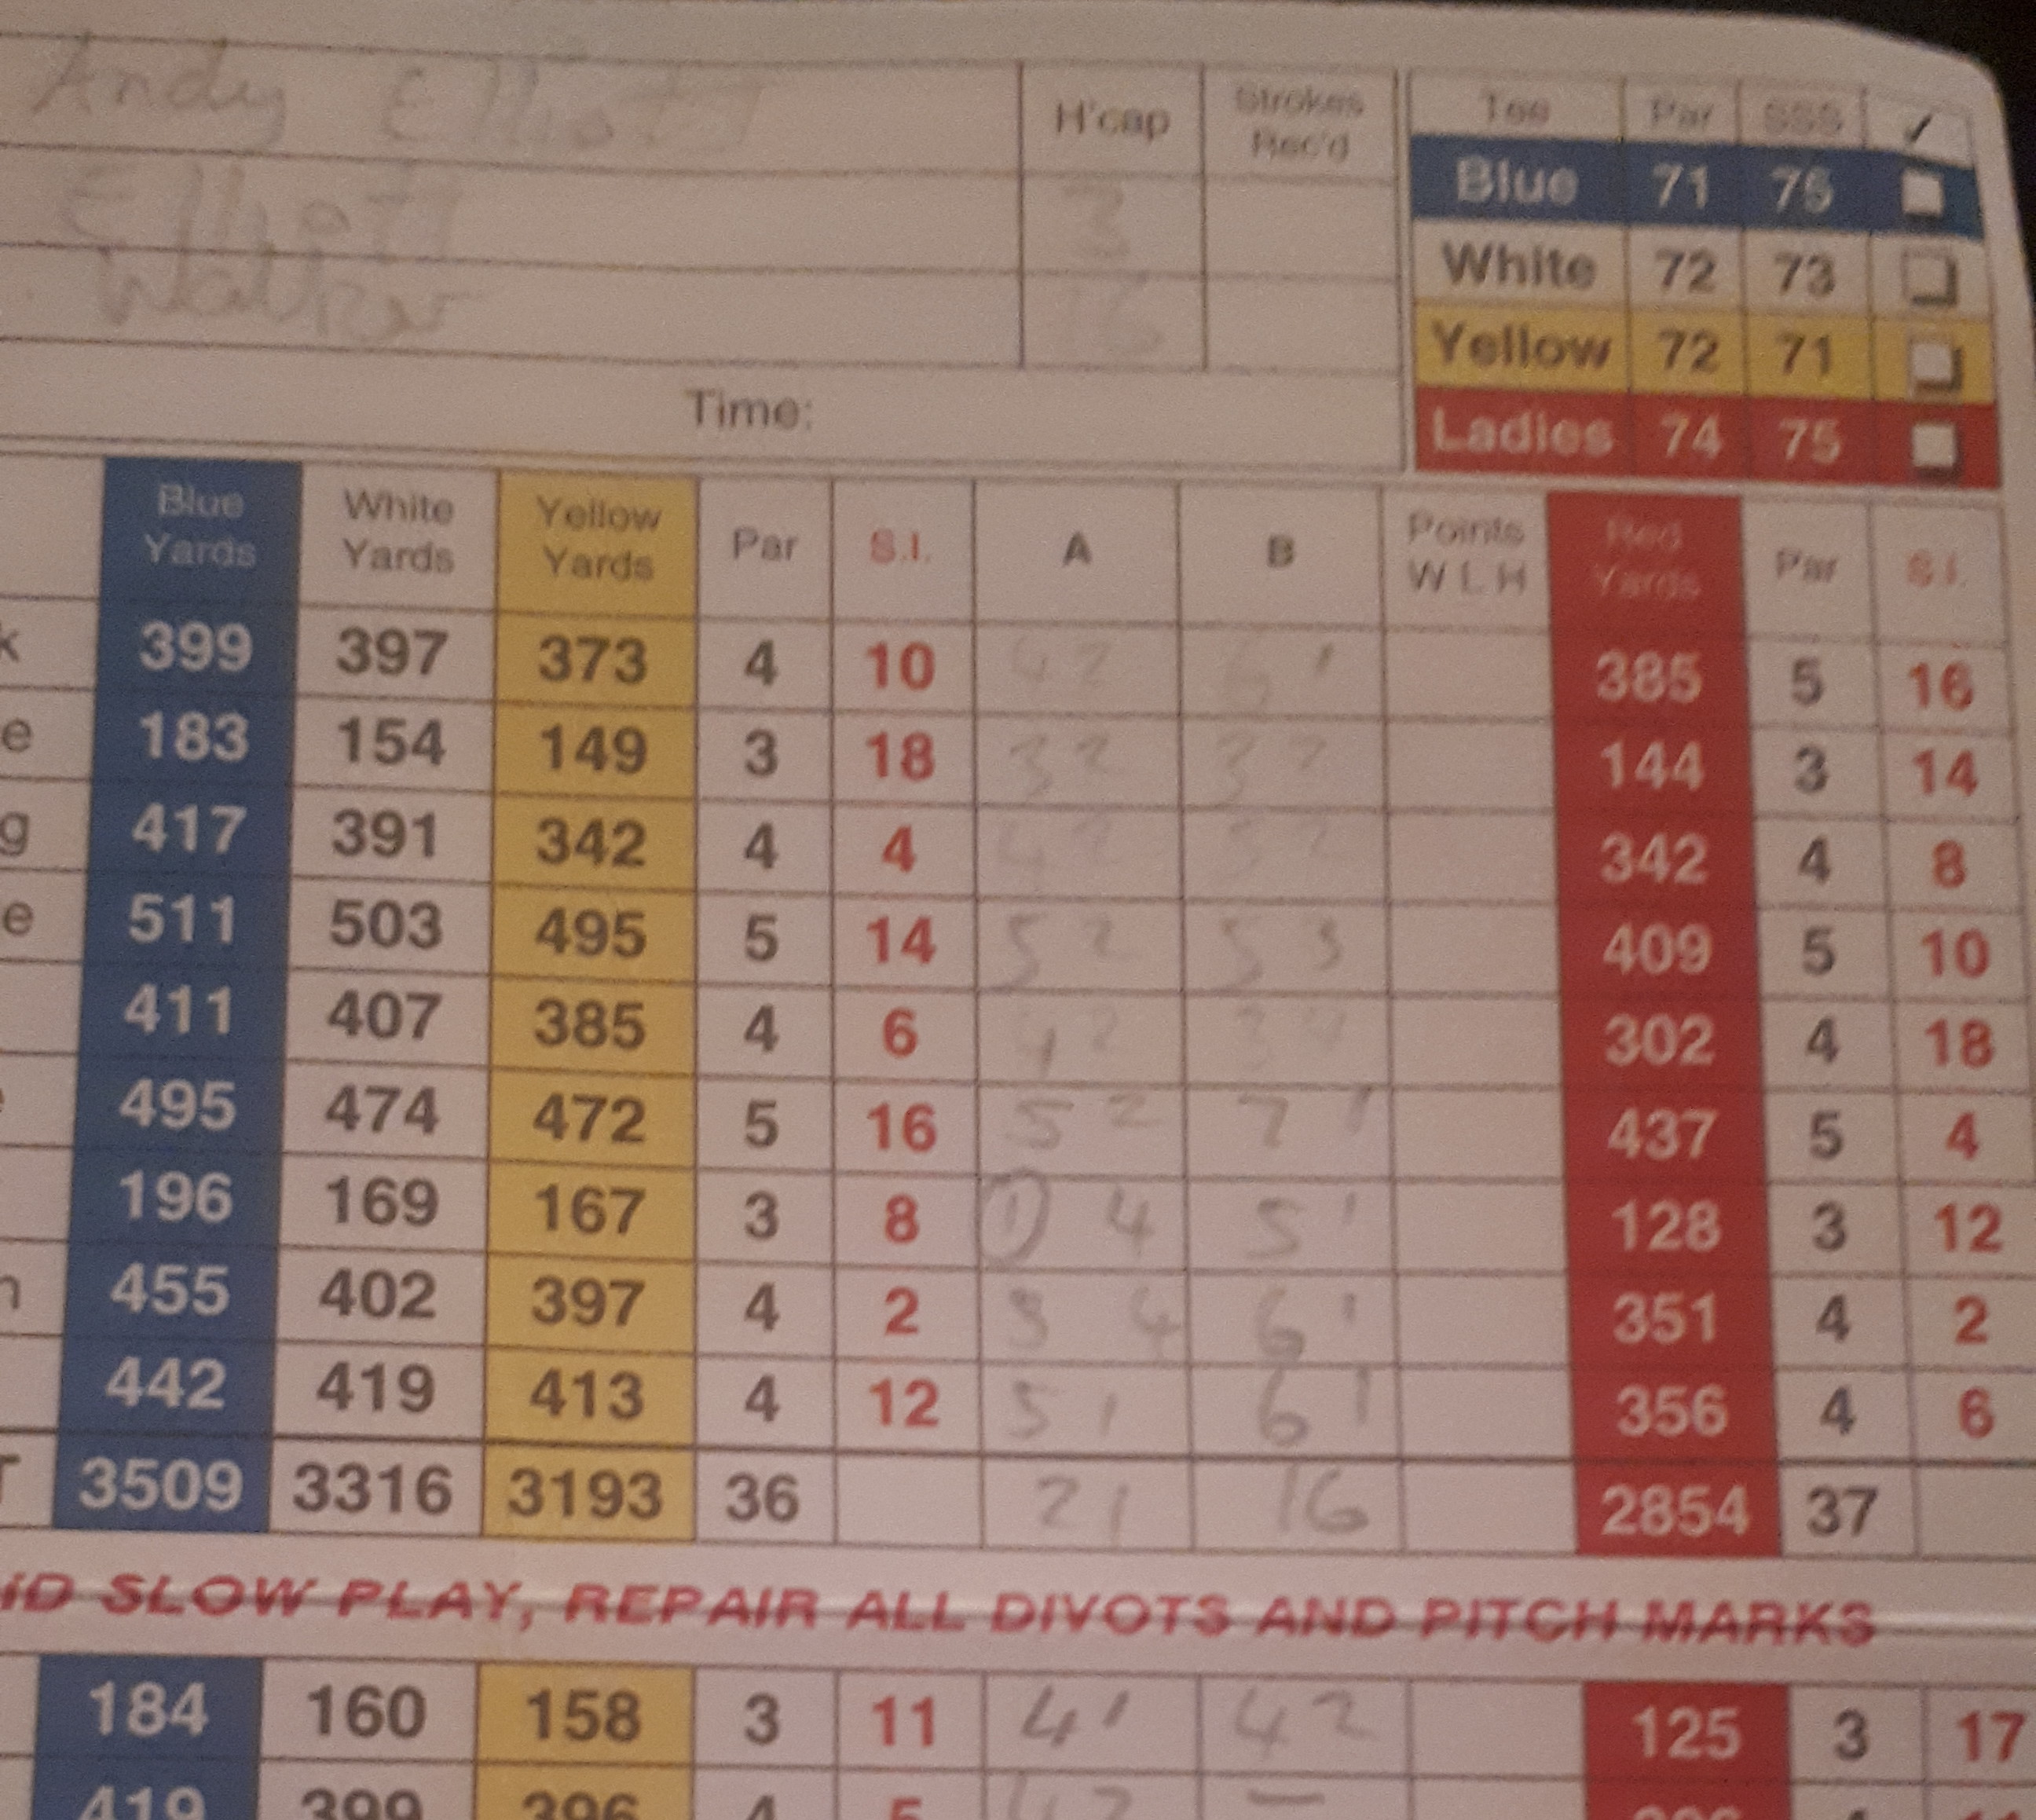 Andy Elliott
H'cap Strokes Rec'd Tee Par SSS ✓
Blue 71 75
Elliott 3
White 72 73
Walker 16
Yellow 72 71
Time:
Ladies 74 75
Blue Yards White Yards Yellow Yards Par S.I. A B Points W L H Red Yards Par S.I.
k 399 397 373 4 10 4 2 6 1 385 5 16
e 183 154 149 3 18 3 2 3 2 144 3 14
g 417 391 342 4 4 4 2 5 2 342 4 8
e 511 503 495 5 14 5 2 5 3 409 5 10
411 407 385 4 6 4 2 302 4 18
495 474 472 5 16 5 2 7 1 437 5 4
196 169 167 3 8 1 4 5 1 128 3 12
455 402 397 4 2 3 4 6 1 351 4 2
442 419 413 4 12 5 1 6 1 356 4 6
3509 3316 3193 36 21 16 2854 37
SLOW PLAY, REPAIR ALL DIVOTS AND PITCH MARKS
184 160 158 3 11 4 1 4 2 125 3 17
419 399 396 4 5 4 2 —